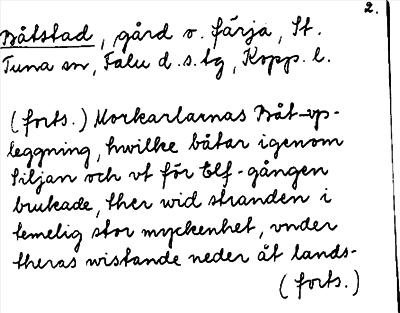 2.
Båtstad, gård o. färja, St.
Tuna sn, Falu d.s.lg, Kopp. l.
(forts.) Morkarlarnas Båt-vp-
leggning, hwilke båtar igenom
Siljan och vt för Elf-gången
brukade, ther wid stranden i
temelig stor myckenhet, vnder
theras wistande neder åt lands-
(forts.)